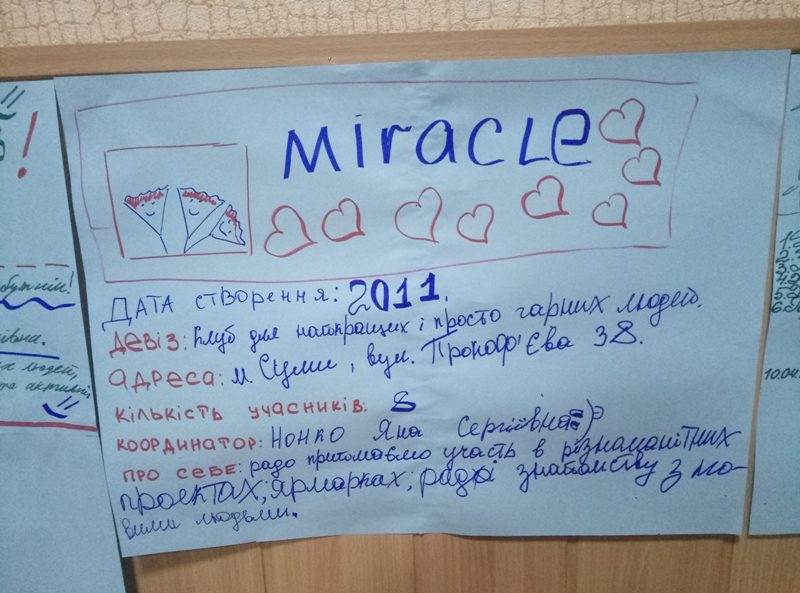 Miracle
Дата створення: 2011.
девіз: Клуб для найкращих і просто гарних людей.
адреса: м. Суми, вул. Прокоф'єва 38.
кількість учасників: 8
координатор: Нонко Яна Сергіївна
про себе: радо приймаємо участь в різноманітних
проектах, ярмарках, радкі знайомству з но-
вими людьми.
10.04